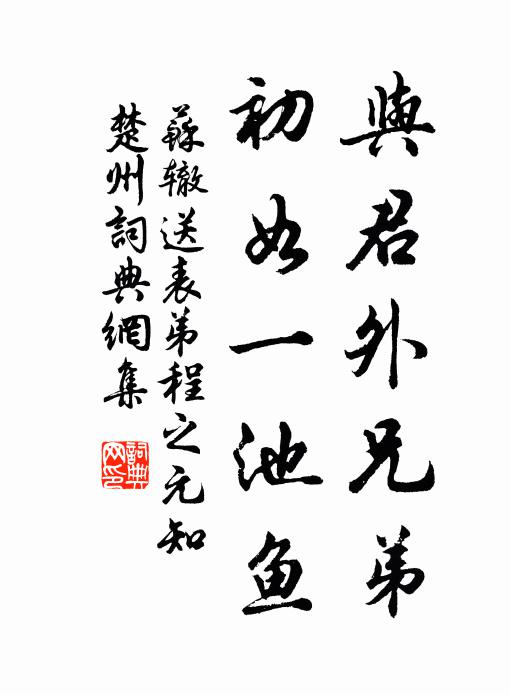 與君外兄弟
初如一池魚
蘇辙送表弟程之元知
楚州詞典網集
詞典
网印